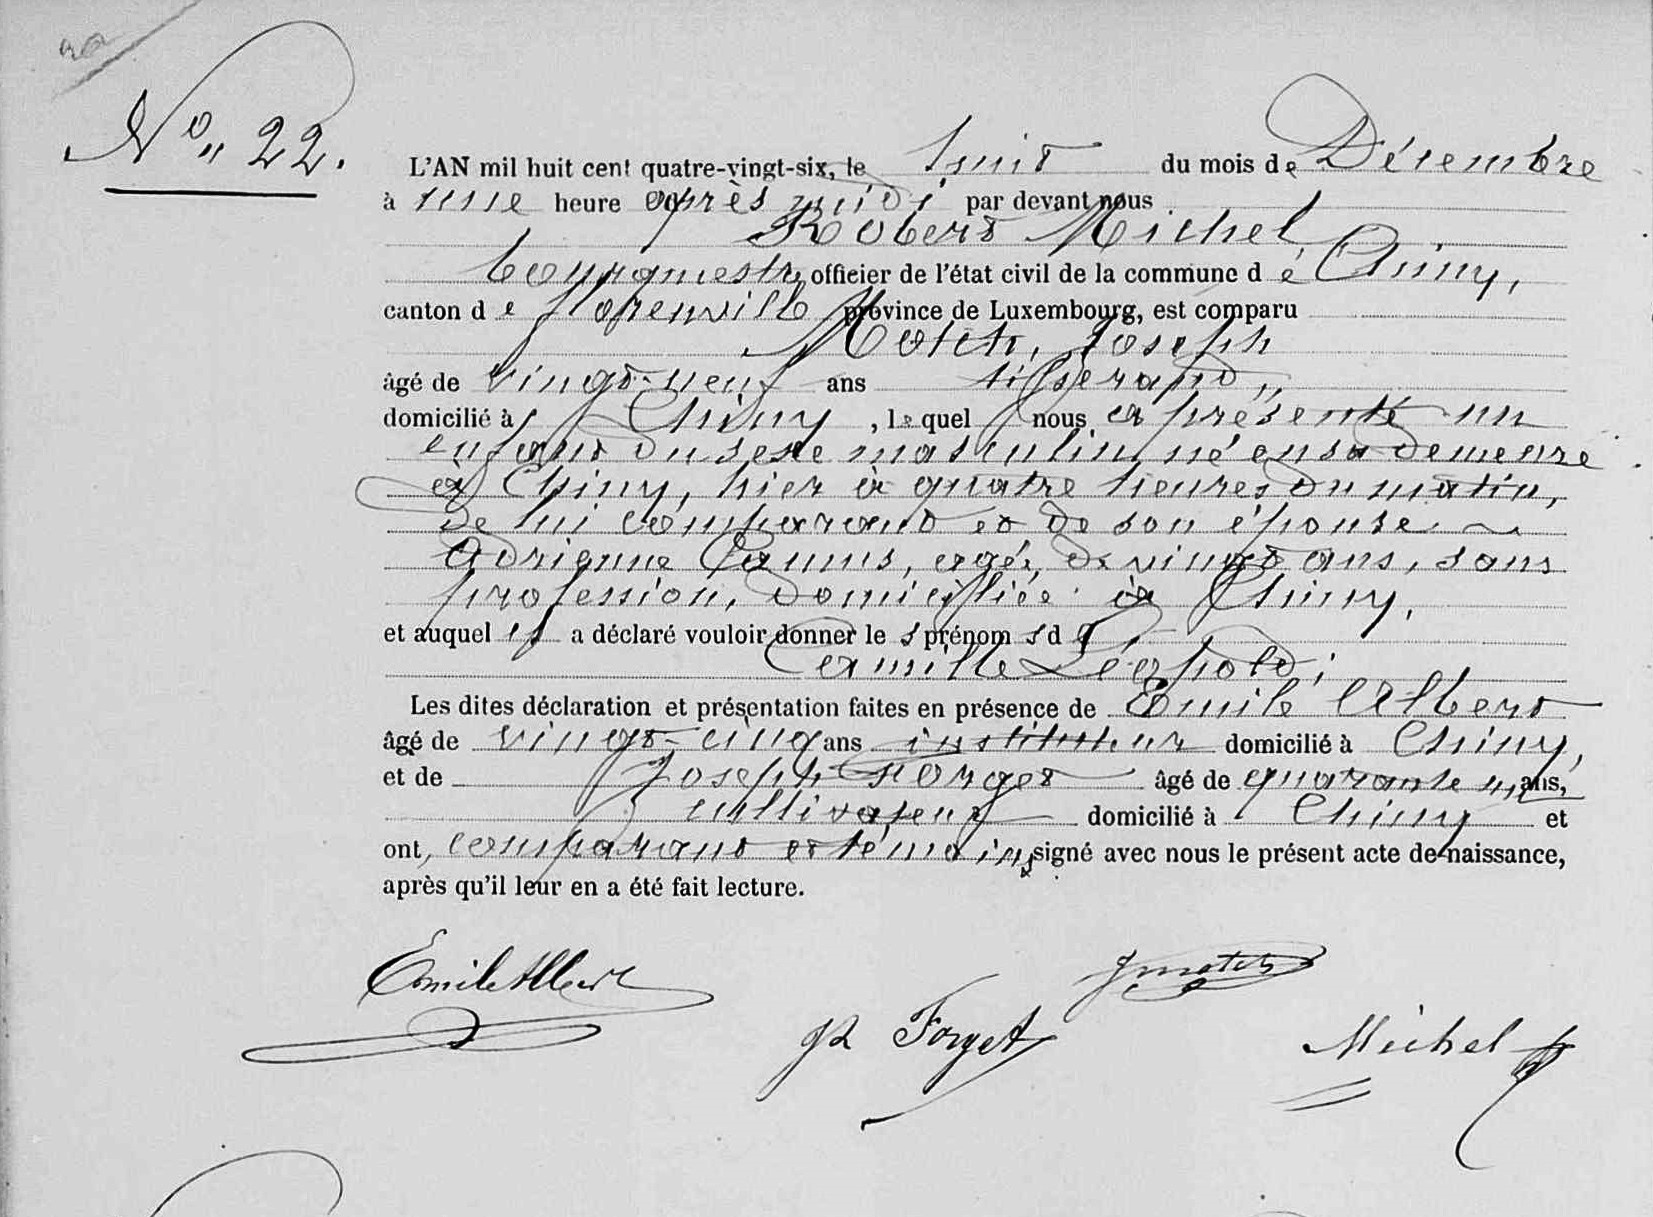 No 22.
L'AN mil huit cent quatre-vingt-six, le huit du mois de Décembre
à une heure après midi par devant nous
Robert Michel
bourgmestre officier de l'état civil de la commune de Chiny,
canton de florenville province de Luxembourg, est comparu
Motch, Joseph
âgé de vingt-neuf ans tisserand,,
domicilié à Chiny, lequel nous a présenté un
enfant du sexe masculin né en sa demeure
à Chiny, hier à quatre heures du matin,
de lui comparant et de son épouse
Adrienne Camus, agée de vingt ans, sans
profession, domiciliée à Chiny,
et auquel il a déclaré vouloir donner les prénoms d
Camille Léopold;
Les dites déclaration et présentation faites en présence de Emile Albert
âgé de vingt-cinq ans instituteur domicilié à Chiny,
et de Joseph Forget âgé de quarante un ans,
cultivateur domicilié à Chiny et
ont, comparant et témoins signé avec nous le présent acte de naissance,
après qu'il leur en a été fait lecture.
Emile Albert
Jh Forget
Michel